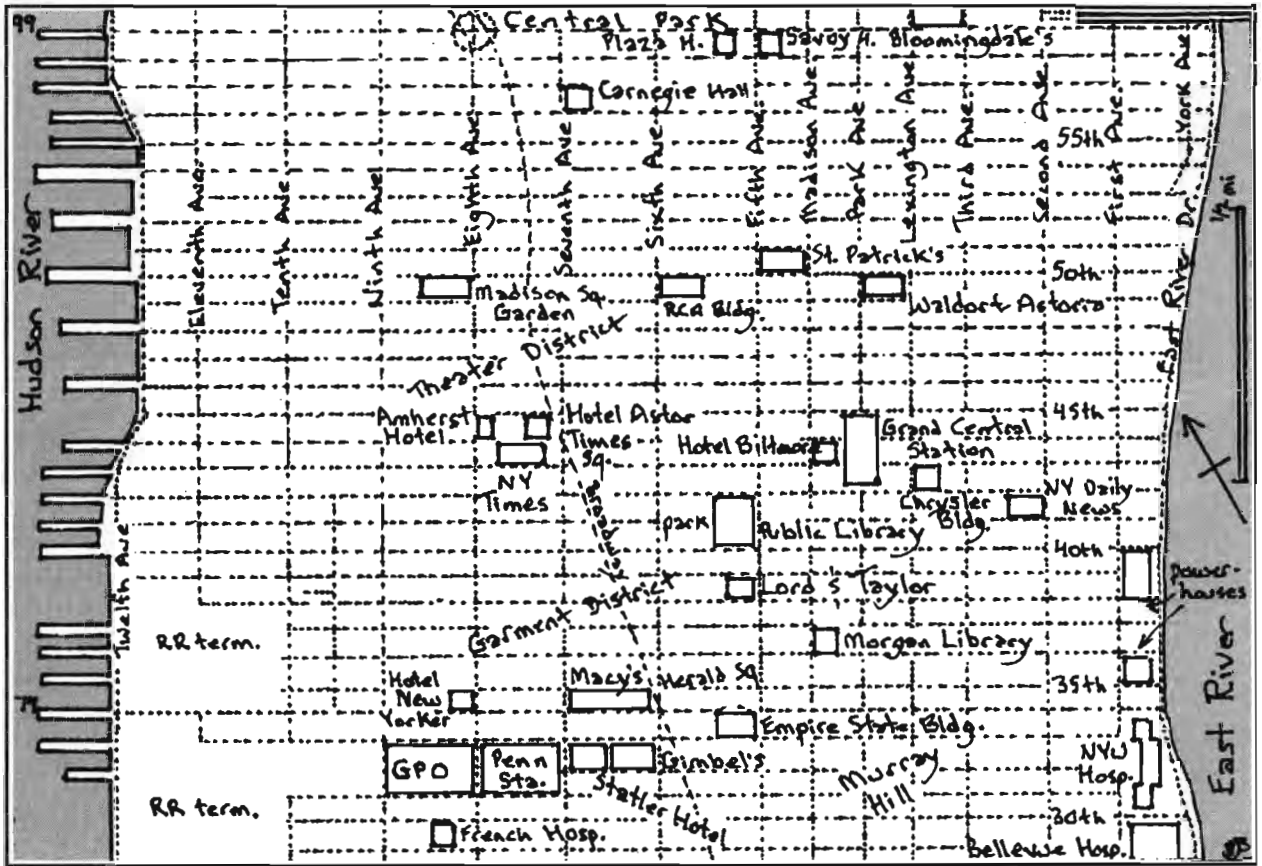 99
Central Park
Plaza H.
Savoy H.
Bloomingdale's
Carnegie Hall
York Ave
55th
Hudson River
Eleventh Ave.
Tenth Ave
Ninth Ave
Eighth Ave
Seventh Ave
Sixth Ave
Fifth Ave
Madison Ave
Park Ave
Lexington Ave
Third Ave.
Second Ave
First Ave.
East River Dr.
1/2 mi
St. Patrick's
50th
Madison Sq.
Garden
RCA Bldg.
Waldorf Astoria
Theater District
45th
Amherst
Hotel
Hotel Astor
Times
Sq.
Hotel Biltmore
Grand Central
Station
NY
Times
Chrysler
Bldg.
NY Daily
News
Broadway
park
Public Library
40th
power-
houses
Twelth Ave
Lord & Taylor
Garment District
RR term.
Morgan Library
East River
35th
Hotel
New
Yorker
Macy's
Herald Sq
Empire State Bldg.
GPO
Penn
Sta.
Gimbel's
Statler Hotel
Murray
Hill
NYU
Hosp.
RR term.
French Hosp.
30th
Bellevue Hosp.